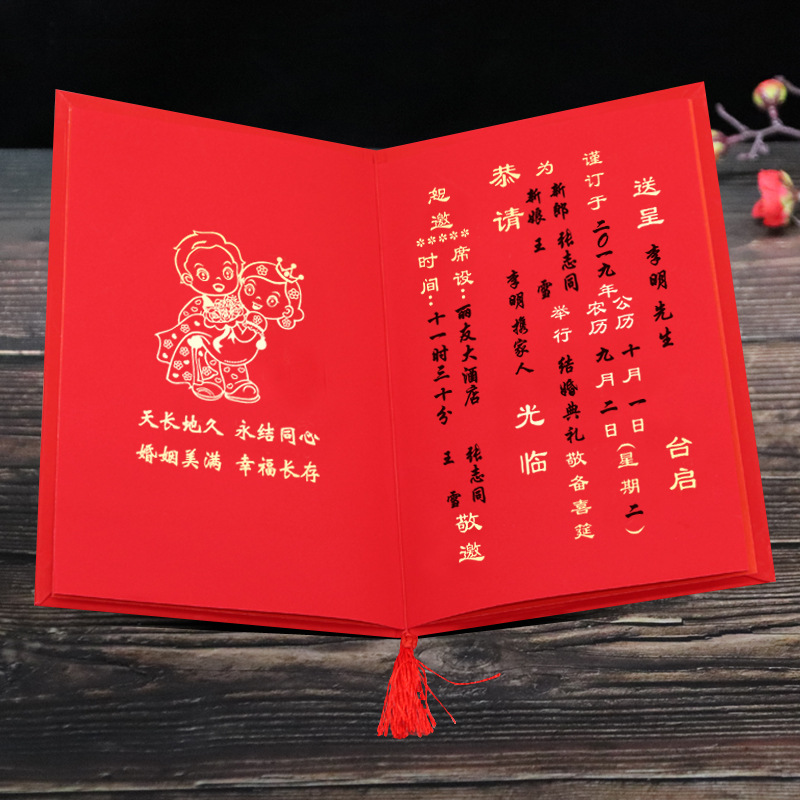 天长地久 永结同心
婚姻美满 幸福长存
送呈 李明先生 台启
谨订于二〇一九年
公历十月一日(星期二)
农历九月二日
为
新郎 张志同
新娘 王雪
举行结婚典礼敬备喜筵
恭请 李明携家人 光临
恕邀
*****
席设:丽友大酒店
时间:十一时三十分
张志同
王雪
敬邀